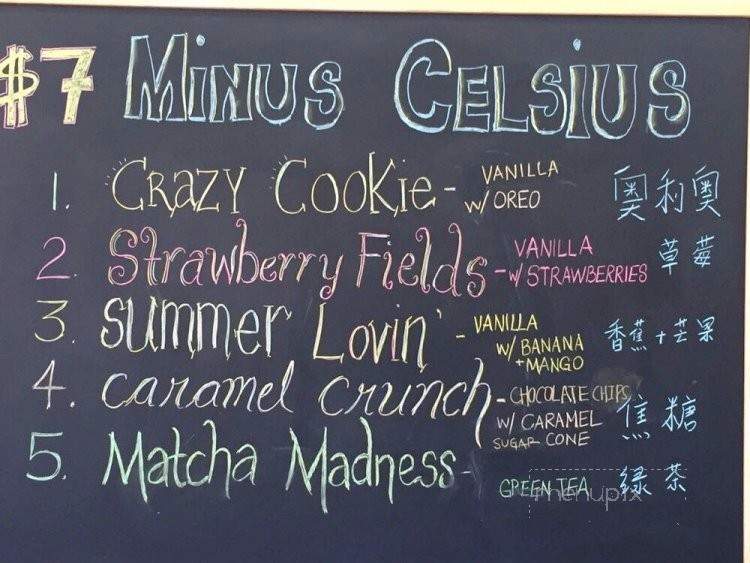 $7 MiNUS CELSiUS
1. CRAZY COOKie - VANILLA
w/ OREO 奥利奥
2. Strawberry Fields - VANILLA
w/ STRAWBERRIES 草莓
3. summer Lovin' - VANILLA
w/ BANANA
+ MANGO 香蕉+芒果
4. caramel crunch - CHOCOLATE CHIPS
w/ CARAMEL 焦糖
SUGAR CONE
5. Matcha Madness - GREEN TEA 緑茶
menupix